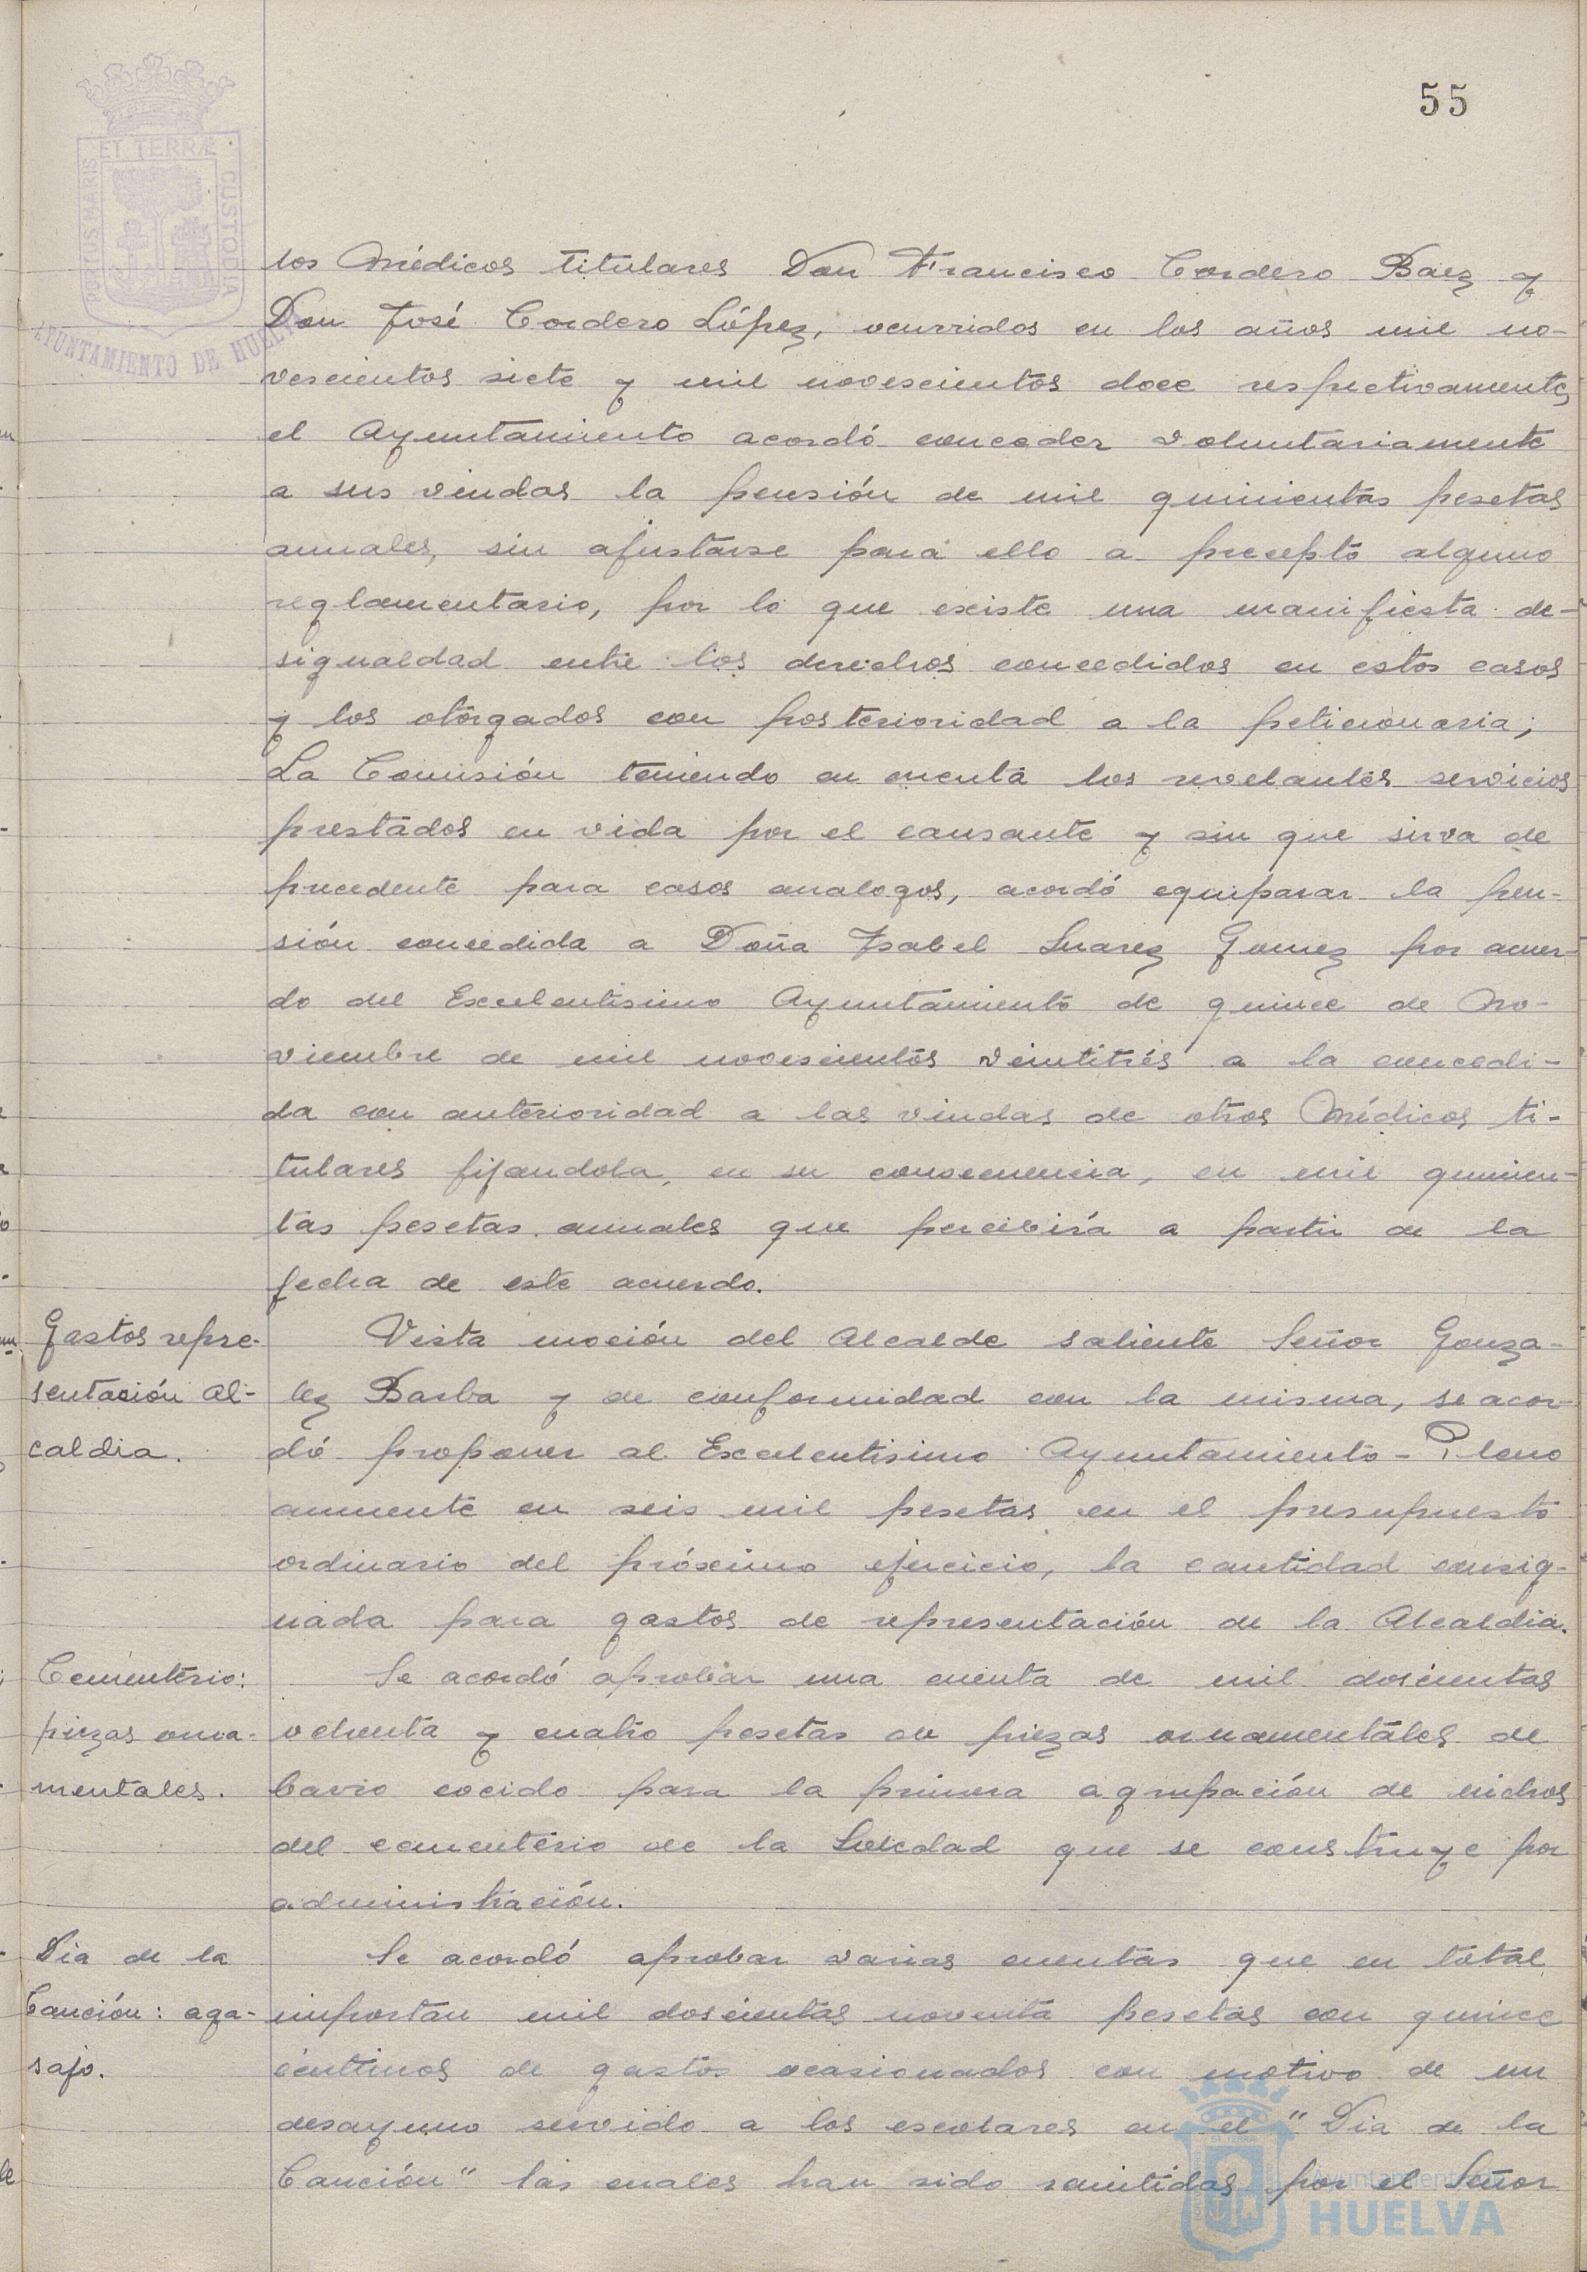 55
PORTUS MARIS ET TERRÆ CUSTODIA
AYUNTAMIENTO DE HUELVA
los Médicos titulares Don Francisco Cordero Baez y
Don José Cordero López, ocurridos en los años mil no-
vescientos siete y mil novescientos doce respectivamente,
el Ayuntamiento acordó conceder voluntariamente
a sus viudas la pensión de mil quinientas pesetas
anuales, sin ajustarse para ello a precepto alguno
reglamentario, por lo que existe una manifiesta de-
sigualdad entre los derechos concedidos en estos casos
y los otorgados con posterioridad a la peticionaria;
La Comisión teniendo en cuenta los revelantes servicios
prestados en vida por el causante y sin que sirva de
precedente para casos analogos, acordó equiparar la pen-
sión concedida a Doña Isabel Suarez Gomez por acuer-
do del Excelentisimo Ayuntamiento de quince de No-
viembre de mil novescientos veintitrés a la concedi-
da con anterioridad a las viudas de otros Médicos ti-
tulares fijandola, en su consecuencia, en mil quinien-
tas pesetas anuales que percibirá a partir de la
fecha de este acuerdo.
Gastos repre-
sentación Al-
caldia.
Vista moción del Alcalde saliente Señor Gonza-
lez Barba y de conformidad con la misma, se acor-
dó proponer al Excelentisimo Ayuntamiento-Pleno
aumente en seis mil pesetas en el presupuesto
ordinario del próximo ejercicio, la cantidad consig-
nada para gastos de representación de la Alcaldia.
Cementerio:
piezas orna-
mentales.
Se acordó aprobar una cuenta de mil doscientas
ochenta y cuatro pesetas de piezas ornamentales de
barro cocido para la primera agrupación de nichos
del cementerio de la Soledad que se construye por
administración.
Dia de la
Canción: aga-
sajo.
Se acordó aprobar varias cuentas que en total
importan mil doscientas noventa pesetas con quince
céntimos de gastos ocasionados con motivo de un
desayuno servido a los escolares en el "Dia de la
Canción" las cuales han sido remitidas por el Señor
Ayuntamiento de
HUELVA